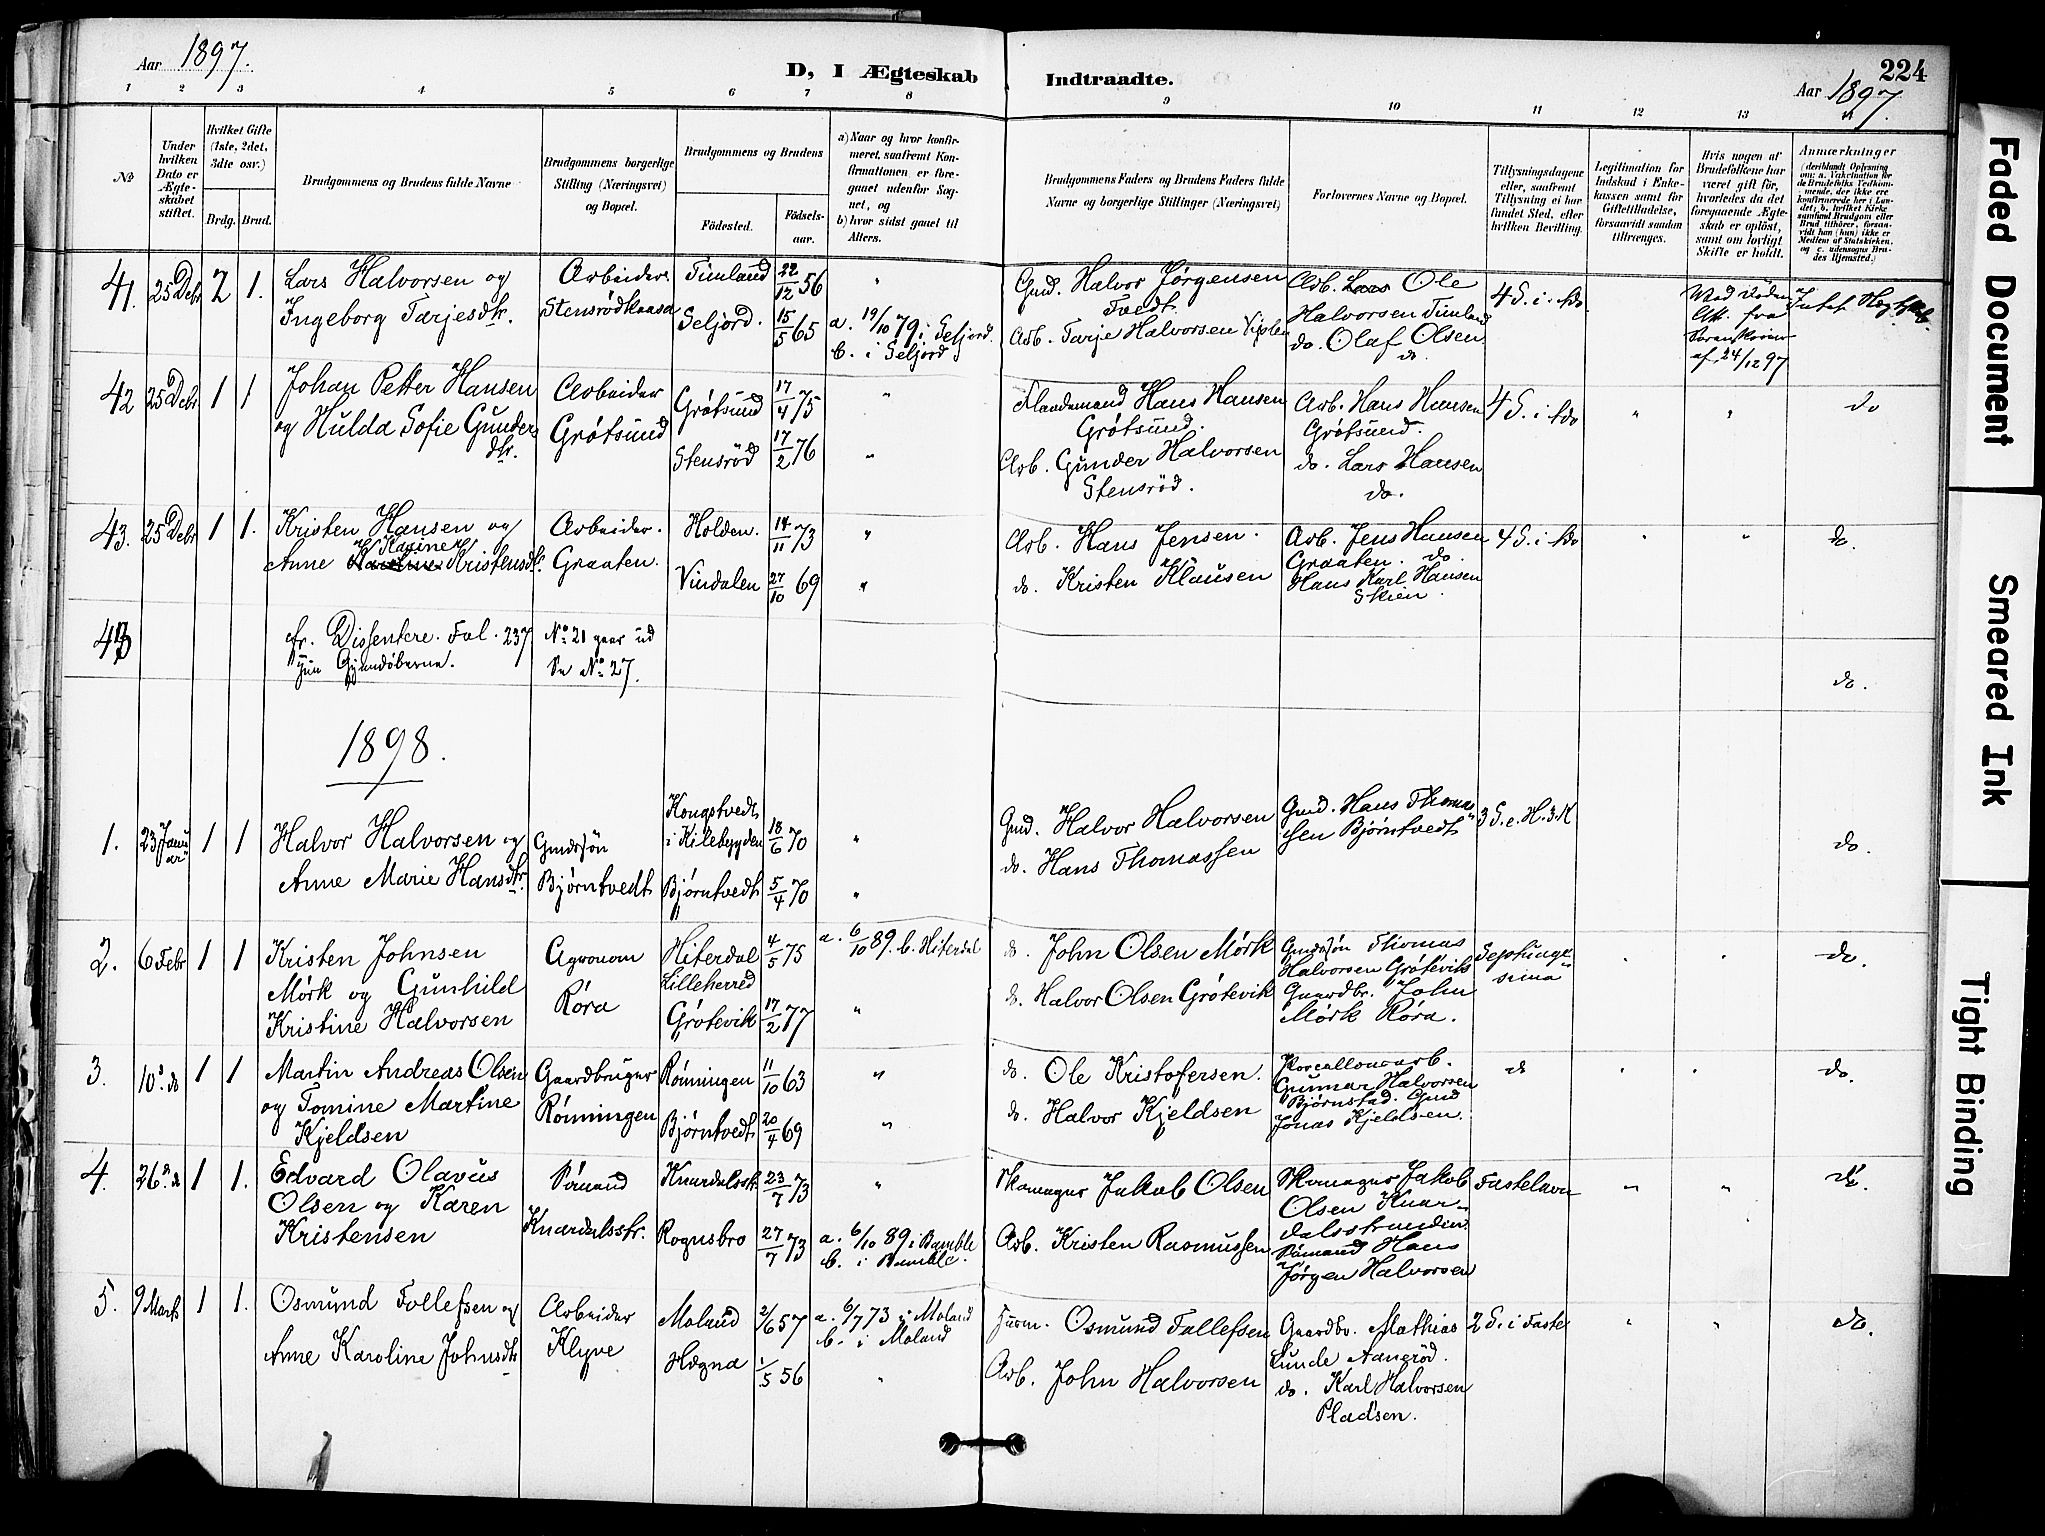 Aar 1897.
D, I Ægteskab Indtraadte.
224
Aar 1897.
1 2 3 4 5 6 7 8 9 10 11 12 13
No
Under hvilken Dato er Ægteskabet stiftet.
Hvilket Gifte (1ste, 2det, 3die osv.)
Brdg. Brud.
Brudgommens og Brudens fulde Navne
Brudgommens borgerlige Stilling (Næringsvei) og Bopæl.
Brudgommens og Brudens
Fødested. Fødselsaar.
a) Naar og hvor konfirmeret, saafremt Konfirmationen er foregaaet udenfor Sognet, og
b) hvor sidst gaaet til Alters.
Brudgommens Faders og Brudens Faders fulde Navne og borgerlige Stillinger (Næringsvei)
Forlovernes Navne og Bopæl.
Tillysningsdagene eller, saafremt Tillysning ei har fundet Sted, efter hvilken Bevilling.
Legitimation for Indskud i Enkekassen samt for Giftetilladelse, forsaavidt saadan tiltrænges.
Hvis nogen af Brudefolkene har været gift før, hvorledes da det foregaaende Ægteskab er opløst, samt om lovligt Skifte er holdt.
Anmærkninger (deriblandt Oplysning om: a. Vakcination for de Brudefolks Vedkommende, der ikke ere konfirmerede her i Landet; b. hvilket Kirkesamfund Brudgom eller Brud tilhører, forsaavidt han (hun) ikke er Medlem af Statskirken, og c. udensogns Brudes Hjemsted.)
41. 25 Debr 2 1. Lars Halvorsen og Arbeider. Timland 22/12 56 " Gmd. Halvor Jørgensen Tvedt. Arb. Lars Ole 4 S. i. Ado
Ingeborg Tarjesdtr. Stensrødkaasa Seljord. 15/5 65 a. 19/10 79 i Seljord. b. i Seljord Arb. Tarje Halvorsen Halvorsen Timland do. Olaf Olsen do
af 24/12 97
42 25 Debr 1 1 Johan Petter Hansen Arbeider Grøtsund 17/4 75 " Hans Hansen Grøtsund. Arb. Hans Hansen Grøtsund. 4 S. i Ado " " do
og Hulda Sofie Gunder dtr. Grøtsund Stensrød 17/2 76 " Arb. Gunder Halvorsen Stensrød. do. Lars Hansen do.
43. 25 Debr 1 1. Kristen Hansen og Arbeider. Holden. 14/11 73 " Arb. Hans Jensen. Arb. Jens Hansen Graaten. do 4 S. i Ado " " do.
Anne Karine Kristensdtr. Graaten. Vindalen 27/10 69 " do. Kristen Klausen Hans Karl Hansen Skien.
43 fr. Dissentere. Fol. 237 No. 21 gaar ud
Se No. 27. do.
1898.
1. 23 Januar 1 1 Halvor Halvorsen og Gmdsøn Kongstvedt i Kilebygden 18/6 70 " Gmd. Halvor Halvorsen Gmd. Hans Thomassen Bjørntvedt 3 S. e. H. 3. K do.
Anne Marie Hansdtr. Bjørntvedt Bjørntvedt 5/4 70 " do. Hans Thomassen
2. 6 Febr 1 1 Kristen Johnsen Agronom Hiterdal Lilleherred 4/5 75 a. 6/10 89. b. Hiterdal do. John Olsen Mørk Gmdssøn Thomas Septuagesima " " do.
Mørk og Gunhild Røra Halvorsen Grøtevik
Kristine Halvorsen Grøtevik 17/2 77 " do. Halvor Olsen Grøtevik Gaardbr. John Mørk Røra.
3. 10. do 1 1 Martin Andreas Olsen Gaardbruger Rønningen 11/10 63 " do. Ole Kristofersen. Porcellonsarb. Gunnar Halvorsen do " " do.
og Tomine Martine Rønningen Bjørnstad. Gmd
Kjeldsen Bjørntvedt 20/4 69 " do. Halvor Kjeldsen Jonas Kjeldsen.
4. 26. do 1 1. Edvard Olavus Sømand Knardalsstr. 23/7 73 " Skomager Jakob Olsen Skomager Jakob Fastelavn " " do.
Olsen og Karen Knardalsstr. Olsen Knardalsstranden.
Kristensen Rognsbro 27/7 73 a. 6/10 89 i Bamble b. i Bamble. Arb. Kristen Rasmussen Sømand Hans Jørgen Halvorsen
5. 9 Marts 1 1. Osmund Tollefsen og Arbeider Moland 2/6 57 a. 6/7 73 i Moland b. i Moland Osmund Tollefsen Gaardbr. Mathias 2 S. i Faste " " do.
Anne Karoline Johnsdtr. Klyve Hægna 1/5 56 " Arb. John Halvorsen Lunde Aanerød. do. Karl Halvorsen Pladsen.
Faded Document
Smeared Ink
Tight Binding